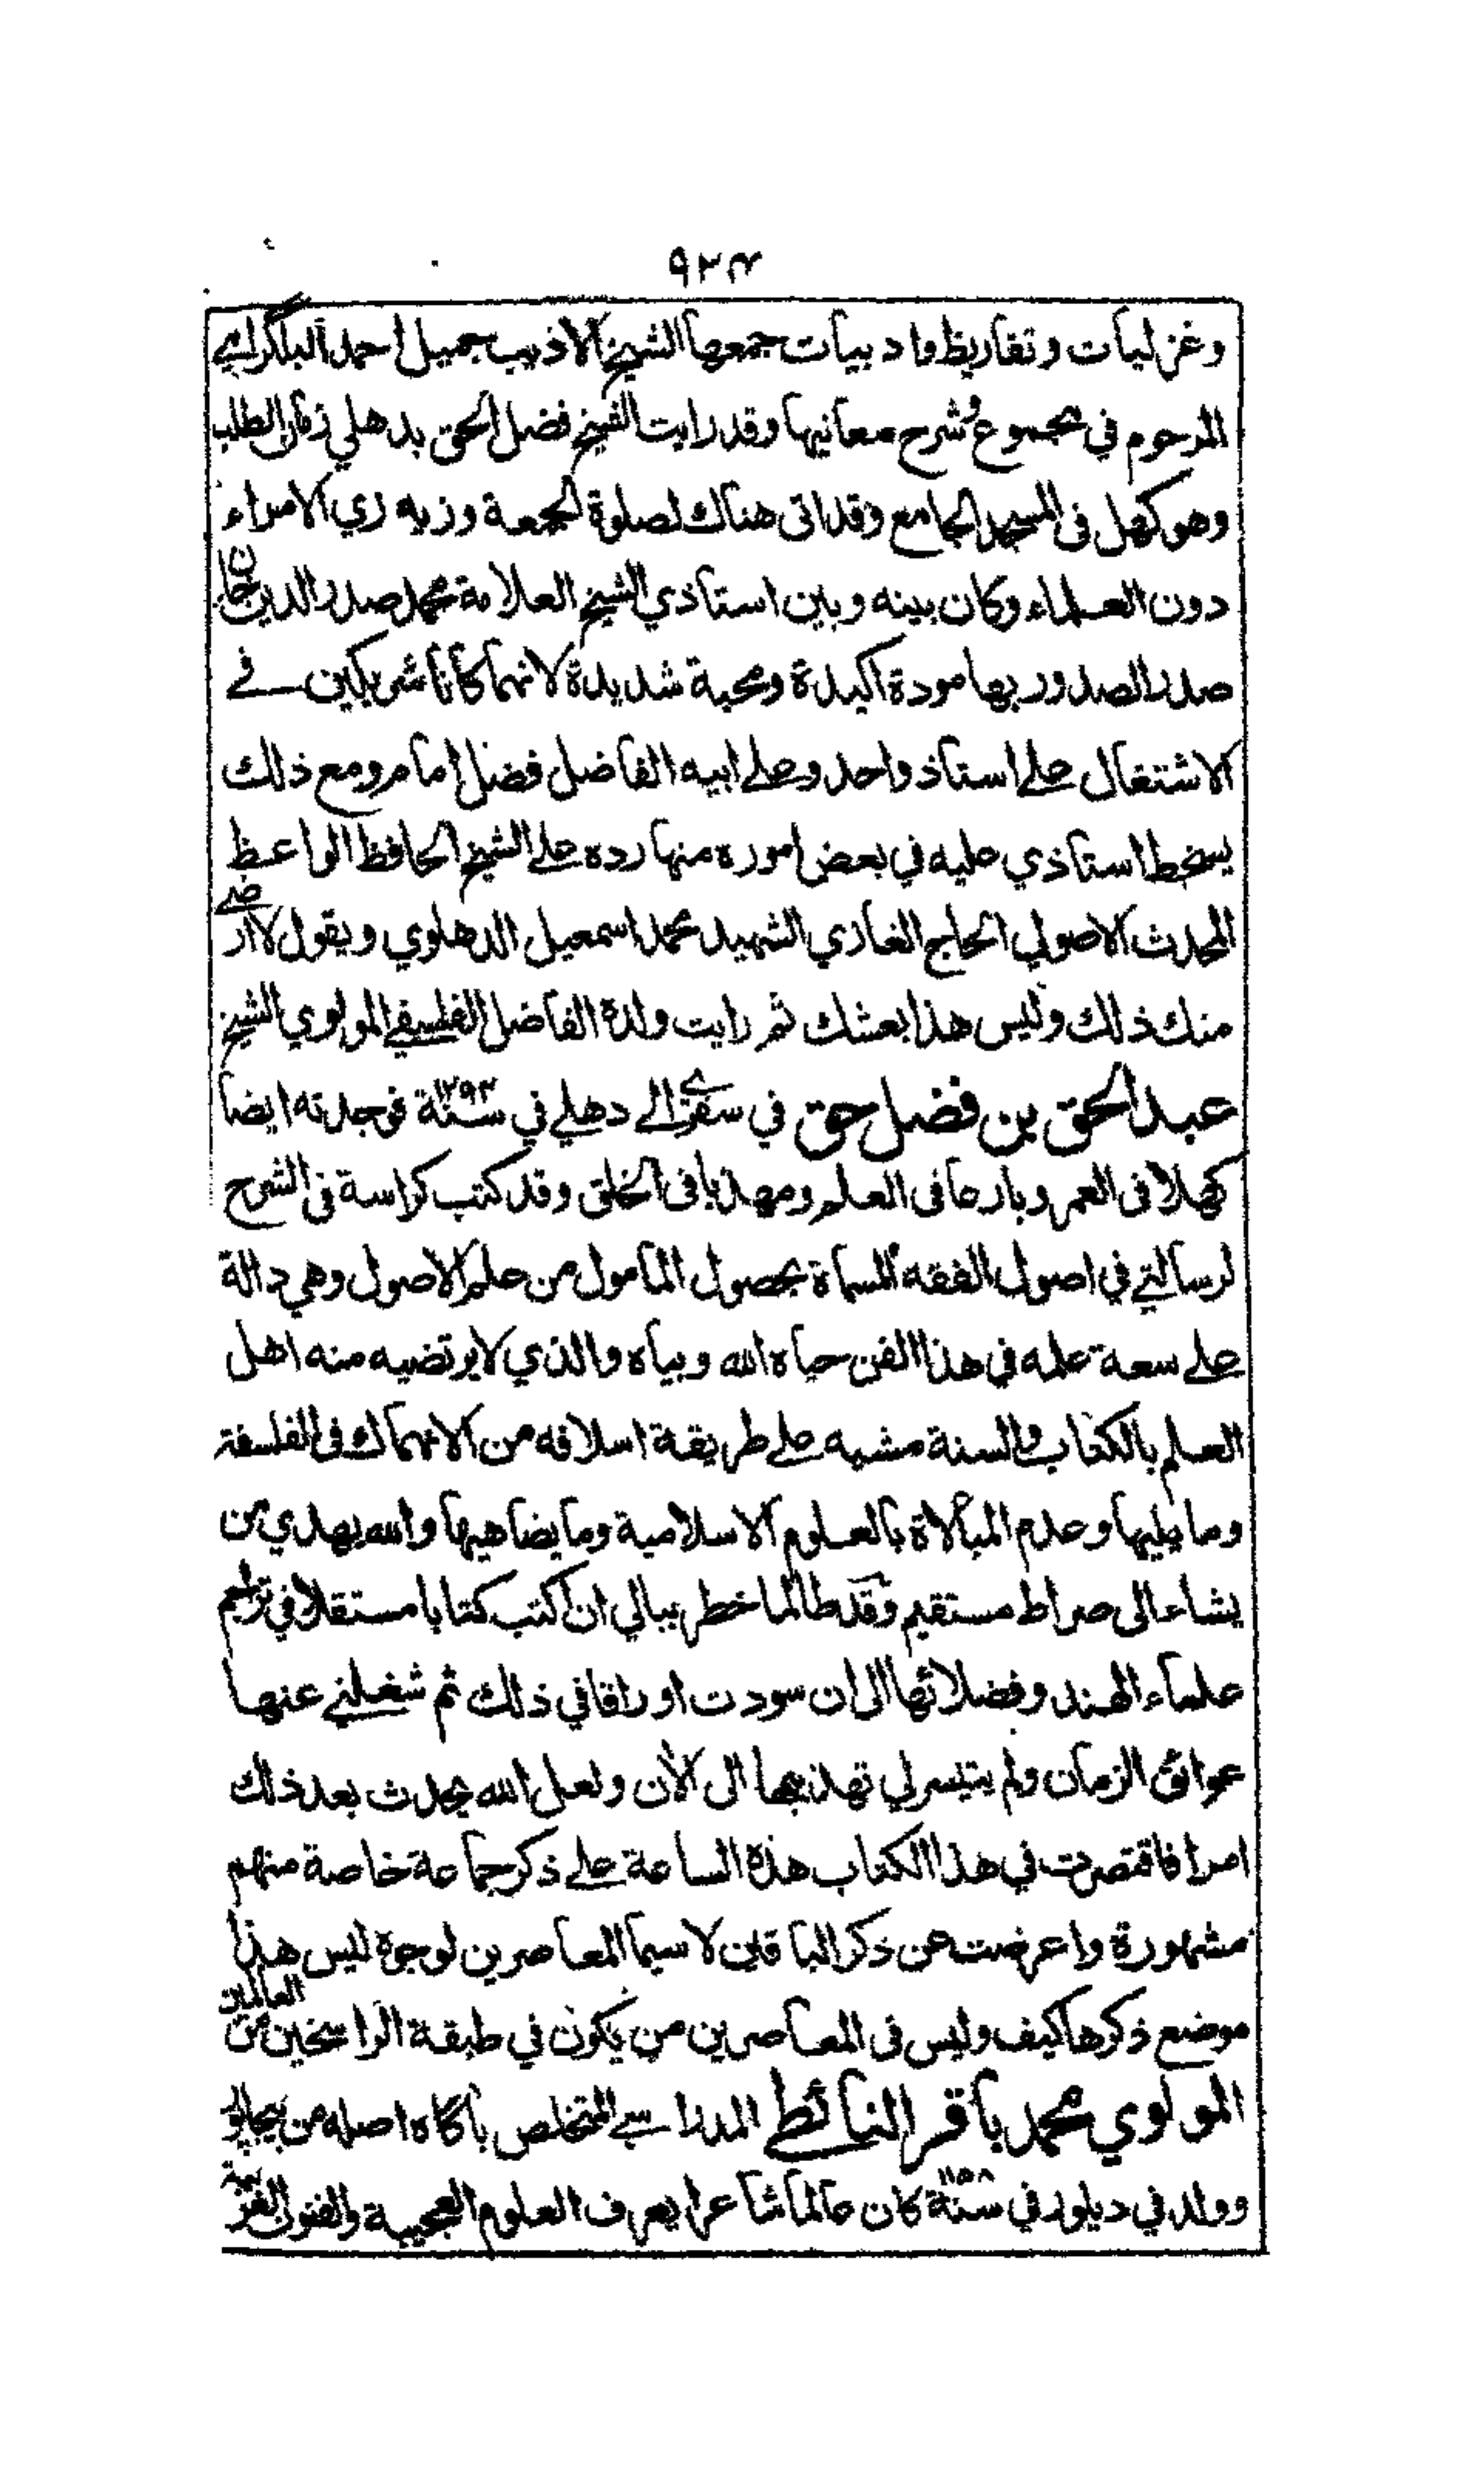 ٩٢٤
وغزليات وتقاريظ وادبيات جمعها الشيخ الاديب جميل احمد البلگرامي
المرحوم في مجموع وشرح معانيها وقد رايت الشيخ فضل الحق بدهلي زمان الطلب
وهو كهل في المسجد الجامع وقد اتى هناك لصلوة الجمعة وزيه زي الامراء
دون العلماء وكان بينه وبين استاذي الشيخ العلامة محمد صدر الدين خان
صدر الصدور بها مودة اكيدة ومحبة شديدة لانهما كانا شريكين في
الاشتغال على استاذ واحد وعلى ابيه الفاضل فضل امام ومع ذلك
يسخط استاذي عليه في بعض اموره منها رده على الشيخ الحافظ الواعظ
المحدث الاصولي الحاج الغازي الشهيد محمد اسمعيل الدهلوي ويقول لا ارضى
منك ذلك وليس هذا بعشك ثم رايت ولده الفاضل الفلسفي المولوي الشيخ
عبد الحق بن فضل حق في سفري الى دهلي في سنة ١٢٩٣ فوجدته ايضا
كهلا في العمر وبارعا في العلم ومهذبا في الخلق وقد كتب كراسة في الشرح
لرسالتي في اصول الفقه المسماة بحصول المأمول من علم الاصول وهي دالة
على سعة علمه في هذا الفن حياه الله وبياه والذي لا يرتضيه منه اهل
العلم بالكتاب والسنة مشيه على طريقة اسلافه من الانهماك في الفلسفة
وما يليها وعدم المبالاة بالعلوم الاسلامية وما يضاهيها والله يهدي من
يشاء الى صراط مستقيم وقد طالما خطر ببالي ان اكتب كتابا مستقلا في تراجم
علماء الهند وفضلائها الى ان سودت اوراقا في ذلك ثم شغلني عنها
عوائق الزمان ولم يتيسر لي تهذيبها الى الآن ولعل الله يحدث بعد ذلك
امرا فاقتصرت في هذا الكتاب هذه الساعة على ذكر جماعة خاصة منهم
مشهورة واعرضت عن ذكر الباقين لا سيما المعاصرين لوجوه ليس هذا
موضع ذكرها كيف وليس في المعاصرين من يكون في طبقة الراسخين من العالمين
المولوي محمد باقر النائطي المدراسي المتخلص بآگاه اصله من بيجاپور
وولد في ديلور في سنة ١١٥٨ كان عالما شاعرا يعرف العلوم العجيبة والفنون الغريبة